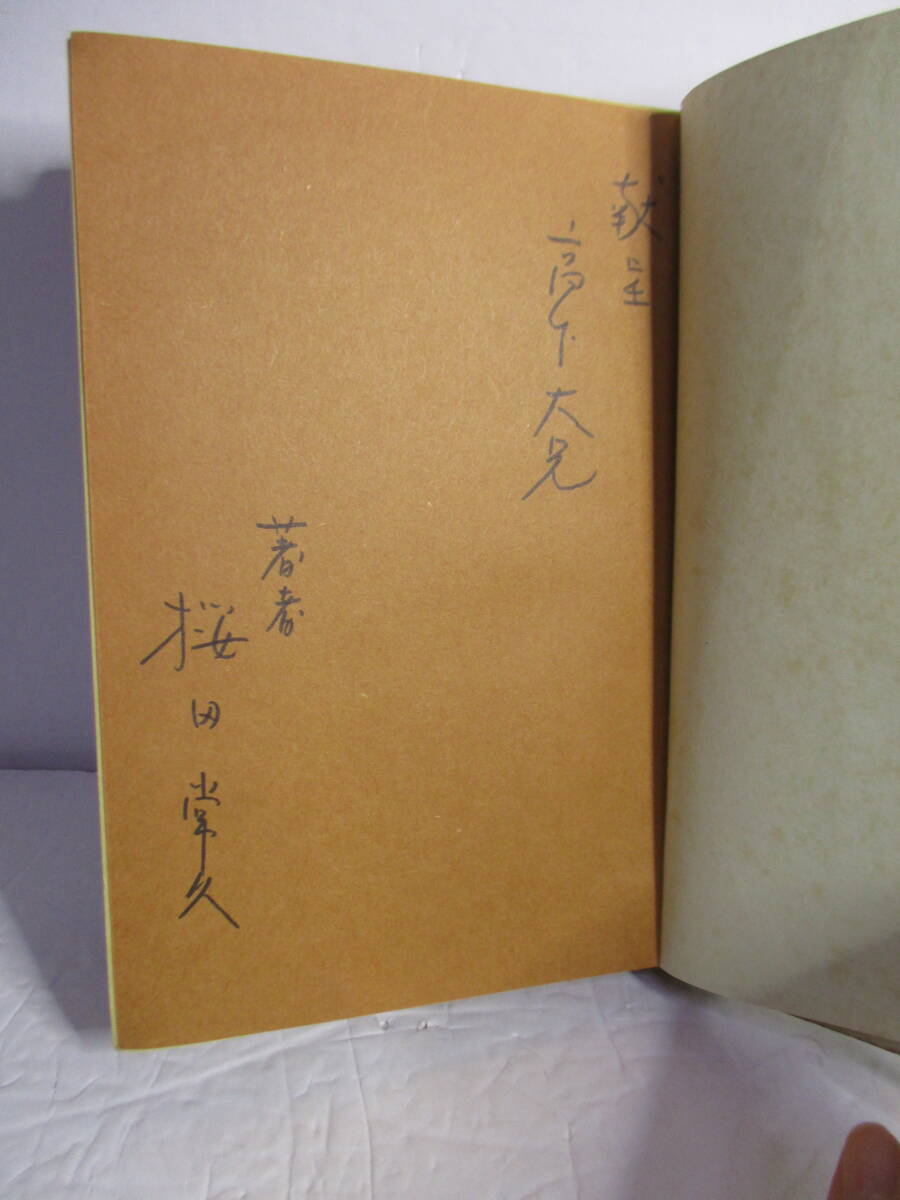 献呈
高下大兄
著者
桜田常久